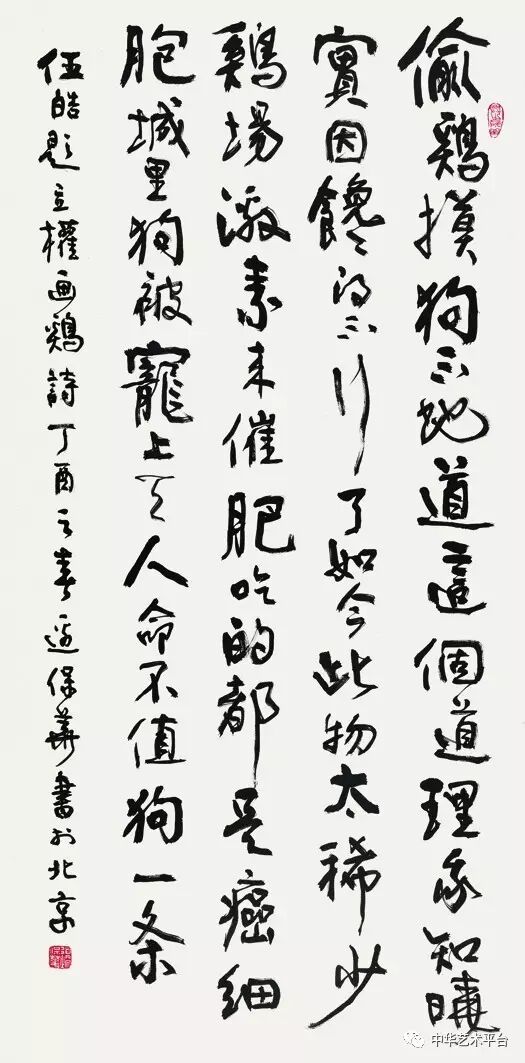 偷鷄摸狗不地道這個道理我知曉
實因饞得不行了如今此物太稀少
鷄場激素来催肥吃的都是癌细
胞城里狗被寵上天人命不值狗一条
伍皓題立權画鷄詩丁酉之春逅保華書於北京
中华艺术平台